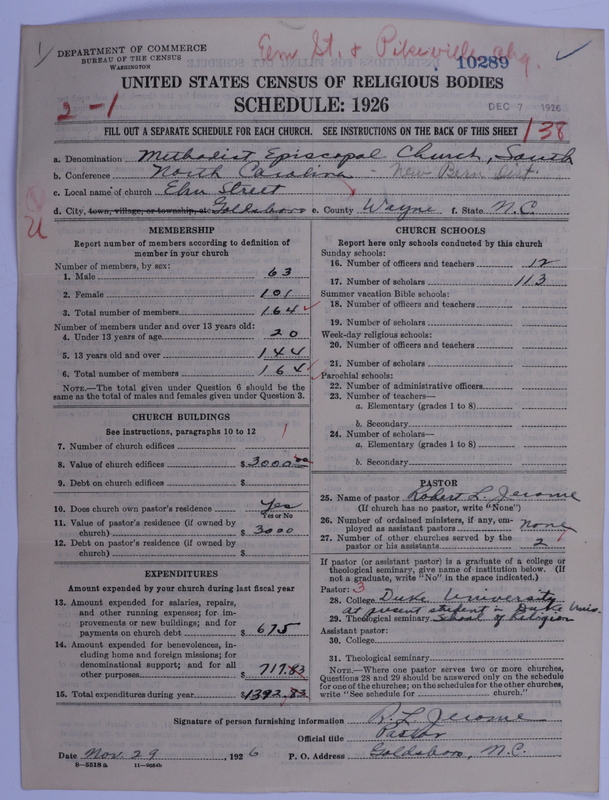 Elm St. & Pikeville chg.
DEPARTMENT OF COMMERCE
BUREAU OF THE CENSUS
WASHINGTON
10289
UNITED STATES CENSUS OF RELIGIOUS BODIES
2-1
SCHEDULE: 1926
DEC 7 1926
FILL OUT A SEPARATE SCHEDULE FOR EACH CHURCH. SEE INSTRUCTIONS ON THE BACK OF THIS SHEET
138
a. Denomination Methodist Episcopal Church, South
b. Conference North Carolina - New Bern Dist.
c. Local name of church Elm Street
d. City, town, village, or township, etc Goldsboro e. County Wayne f. State N.C.
MEMBERSHIP
Report number of members according to definition of
member in your church
Number of members, by sex:
1. Male 63
2. Female 101
3. Total number of members 164
Number of members under and over 13 years old:
4. Under 13 years of age 20
5. 13 years old and over 144
6. Total number of members 164
NOTE.—The total given under Question 6 should be the
same as the total of males and females given under Question 3.
CHURCH BUILDINGS
See instructions, paragraphs 10 to 12
1
7. Number of church edifices
8. Value of church edifices $3000.00
9. Debt on church edifices $
10. Does church own pastor's residence Yes
Yes or No
11. Value of pastor's residence (if owned by
church) $3000
12. Debt on pastor's residence (if owned by
church) $
EXPENDITURES
Amount expended by your church during last fiscal year
13. Amount expended for salaries, repairs,
and other running expenses; for im-
provements or new buildings; and for
payments on church debt $675
14. Amount expended for benevolences, in-
cluding home and foreign missions; for
denominational support; and for all
other purposes $717.83
15. Total expenditures during year $1392.83
CHURCH SCHOOLS
Report here only schools conducted by this church
Sunday schools:
16. Number of officers and teachers 12
17. Number of scholars 113
Summer vacation Bible schools:
18. Number of officers and teachers
19. Number of scholars
Week-day religious schools:
20. Number of officers and teachers
21. Number of scholars
Parochial schools:
22. Number of administrative officers
23. Number of teachers—
a. Elementary (grades 1 to 8)
b. Secondary
24. Number of scholars—
a. Elementary (grades 1 to 8)
b. Secondary
PASTOR
25. Name of pastor Robert L. Jerome
(If church has no pastor, write "None")
26. Number of ordained ministers, if any, em-
ployed as assistant pastors none
27. Number of other churches served by the
pastor or his assistants 2
If pastor (or assistant pastor) is a graduate of a college or
theological seminary, give name of institution below. (If
not a graduate, write "No" in the space indicated.)
Pastor: 3
28. College Duke University
at present student in Duke Univ.
29. Theological seminary School of Religion
Assistant pastor:
30. College
31. Theological seminary
NOTE.—Where one pastor serves two or more churches,
Questions 28 and 29 should be answered only on the schedule
for one of the churches; on the schedules for the other churches,
write "See schedule for church."
Signature of person furnishing information R. L. Jerome
Official title Pastor
Date Nov. 29, 1926 P. O. Address Goldsboro, N.C.
8—5518a 11—9654b